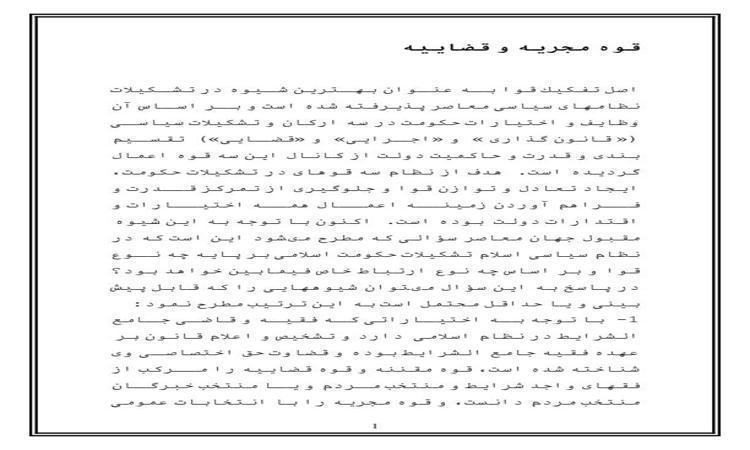 قوه مجریه و قضاییه
اصل تفکیك قوا به عنوان بهترین شیوه در تشکیلات
نظامهای سیاسی معاصر پذیرفته شده است و بر اساس آن
وظایف و اختیارات حکومت در سه ارکان و تشکیلات سیاسی
(«قانون گذاری » و «اجرایی» و «قضایی») تقسیم
بندی و قدرت و حاکمیت دولت از کانال این سه قوه اعمال
گردیده است. هدف از نظام سه قوهای در تشکیلات حکومت.
ایجاد تعادل و توازن قوا و جلوگیری از تمرکز قدرت و
فراهم آوردن زمینه اعمال همه اختیارات و
اقتدارات دولت بوده است. اکنون با توجه به این شیوه
مقبول جهان معاصر سؤالی که مطرح میشود این است که در
نظام سیاسی اسلام تشکیلات حکومت اسلامی بر پایه چه نوع
قوا و بر اساس چه نوع ارتباط خاص فیمابین خواهد بود؟
در پاسخ به این سؤال میتوان شیوههایی را که قابل پیش
بینی و یا حداقل محتمل است به این ترتیب مطرح نمود :
1- با توجه به اختیاراتی که فقیه و قاضی جامع
الشرایط در نظام اسلامی دارد و تشخیص و اعلام قانون بر
عهده فقیه جامع الشرایط بوده و قضاوت حق اختصاصی وی
شناخته شده است. قوه مقننه و قوه قضاییه را مرکب از
فقهای واجد شرایط و منتخب مردم و یا منتخب خبرگان
منتخب مردم دانست. و قوه مجریه را با انتخابات عمومی
1